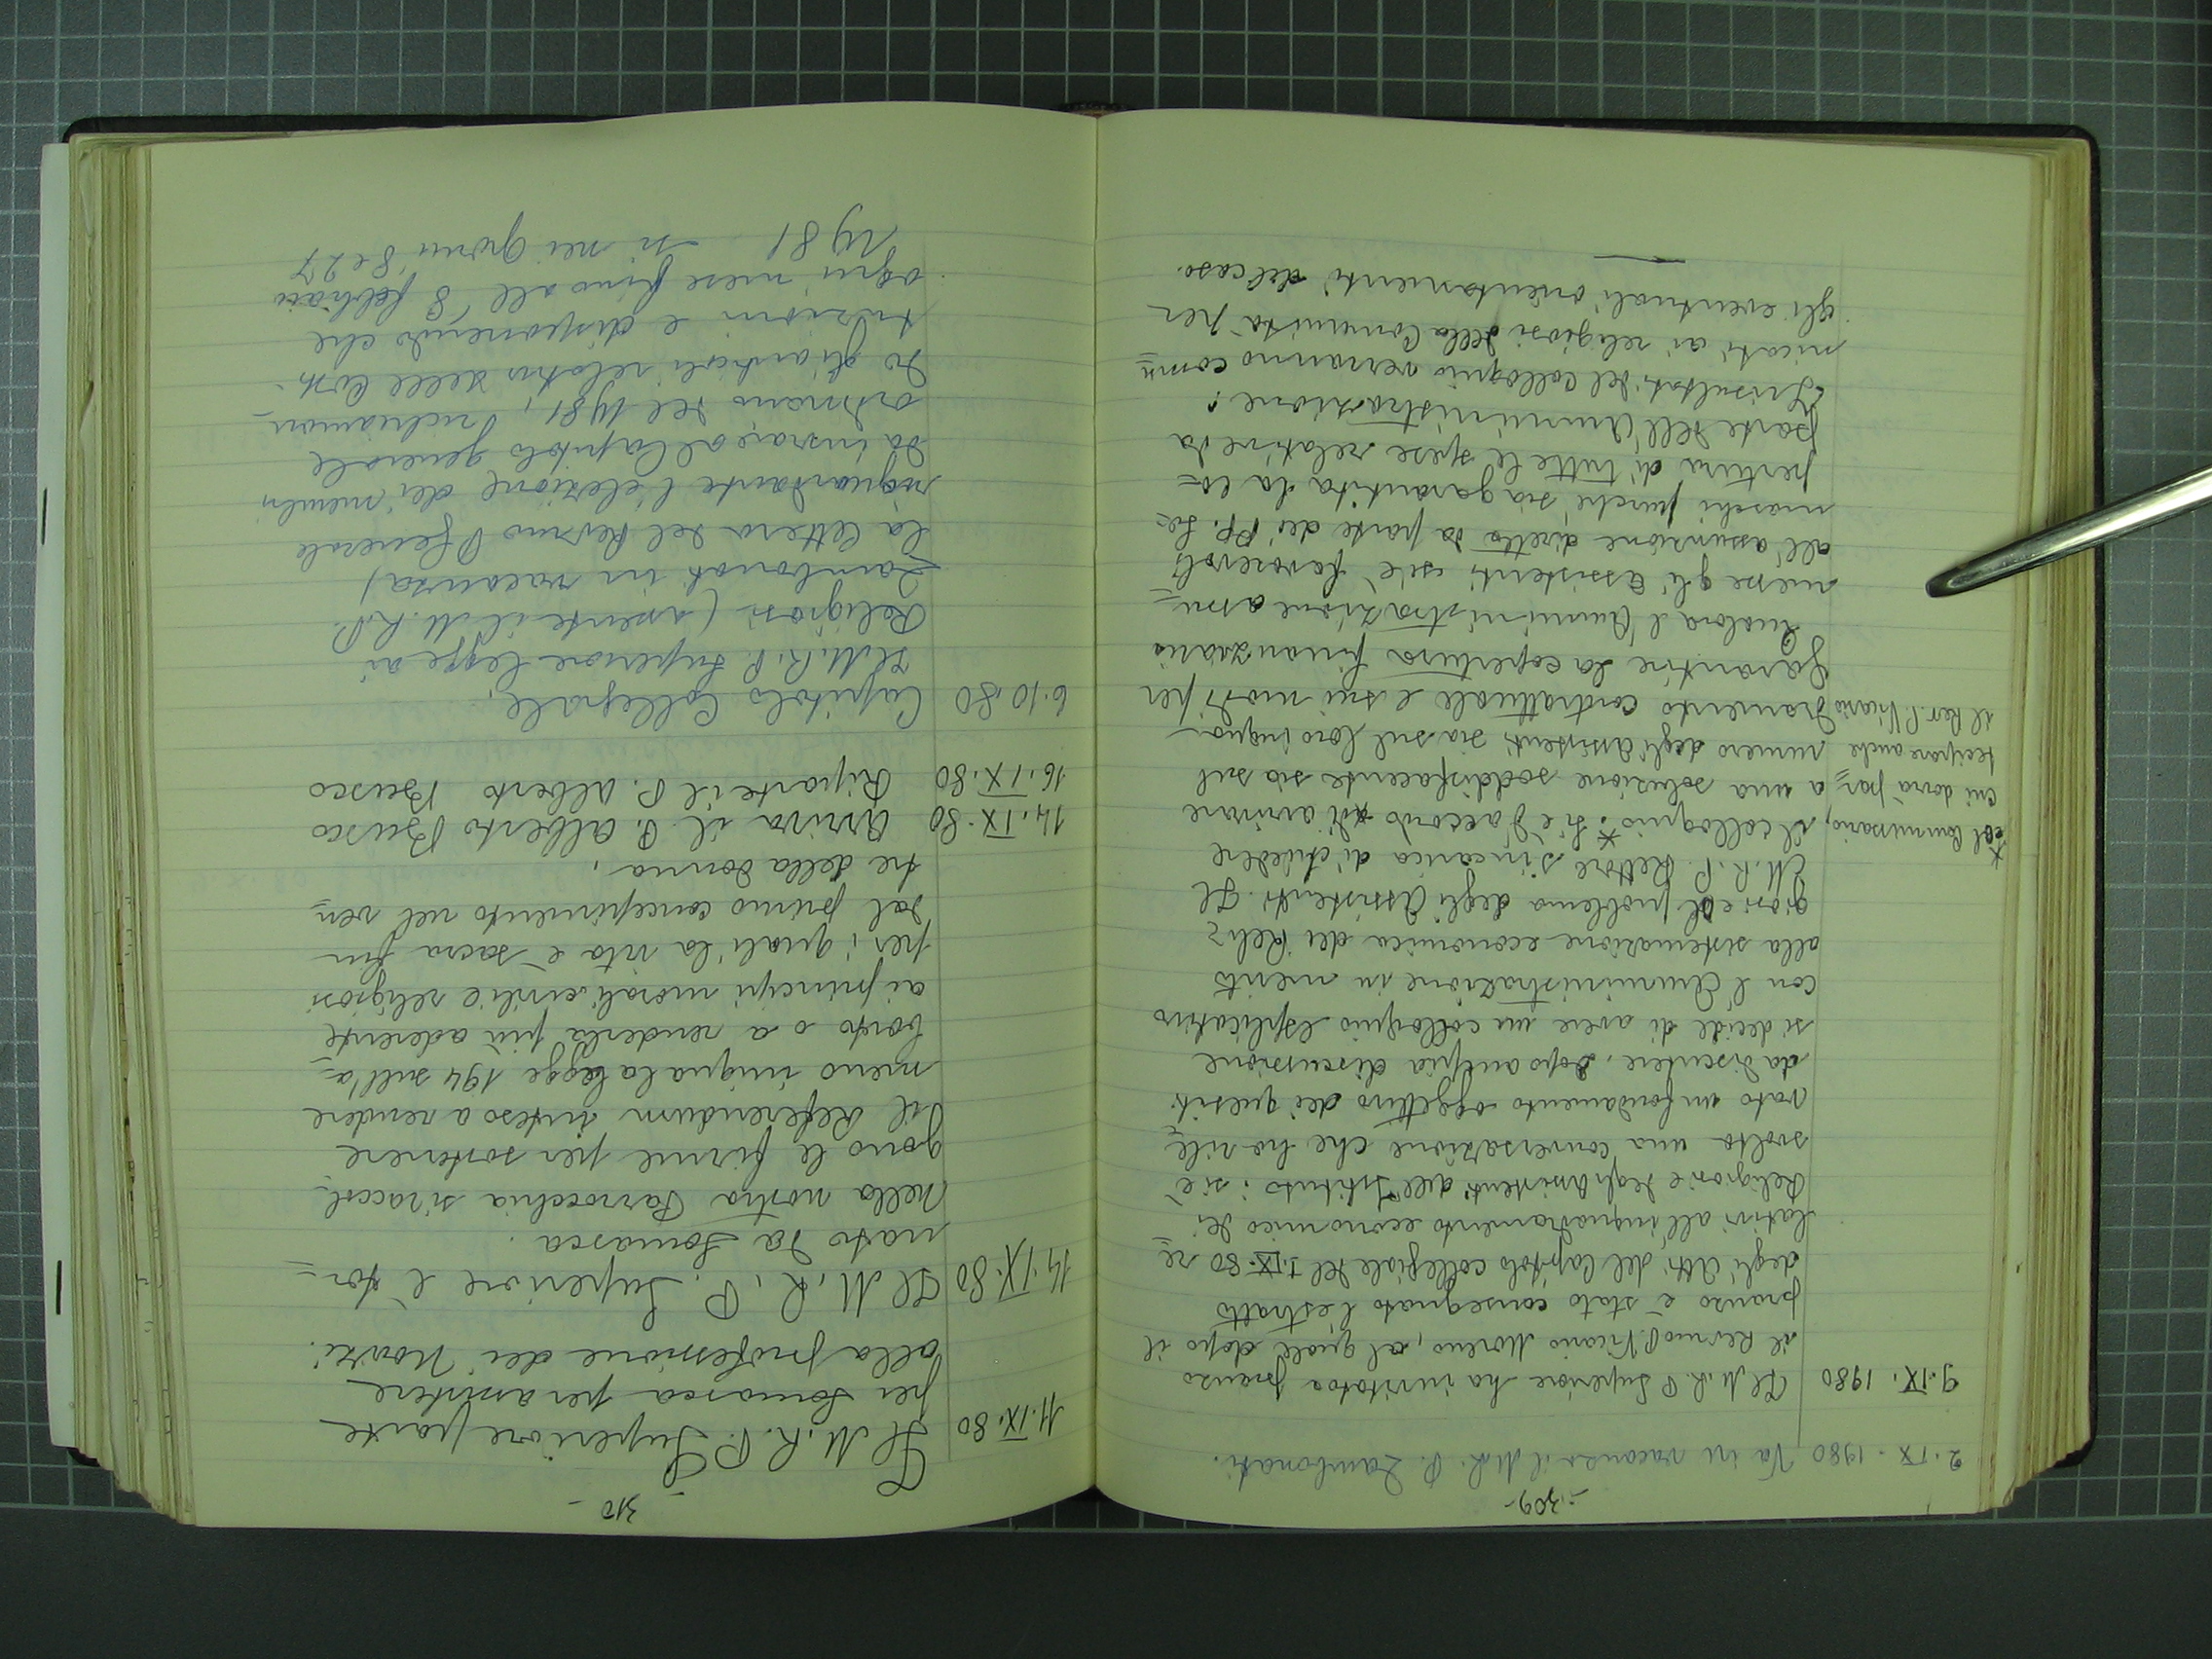 -309-
2.IX.1980 Va in vacanza il M.R. P. Zambonati.
9.IX.1980 Il M.R.P. Superiore ha invitato a pranzo
il Rev.mo P. Vicario Moreno, al quale dopo il
pranzo è stato consegnato l'estratto
degli Atti del Capitolo collegiale del 1.IX.80 re
lativi all'inquadramento economico dei
Religiosi e degli Assistenti dell'Istituto; si è
svolta una conversazione che ha rile
vato un fondamento oggettivo dei quesiti
da discutere. Dopo ampia discussione
si decide di avere un colloquio esplicativo
con l'Amministrazione in merito
alla sistemazione economica dei Reli=
giosi e al problema degli Assistenti. Il
M.R.P. Rettore s'incarica di chiedere
il colloquio.* Si è d'accordo di arrivare
a una soluzione soddisfacente sia sul
numero degli Assistenti sia sul loro inqua-
dramento contrattuale e sui modi per
garantire la copertura finanziaria
Qualora l'Amministrazione assu=
messe gli Assistenti si è favorevoli
all'assunzione diretta da parte dei PP. So-
maschi purché sia garantita la co=
pertura di tutte le spese relative da
parte dell'Amministrazione.
I risultati del colloquio verranno comu
nicati ai religiosi della Comunità per
gli eventuali orientamenti del caso.
* col Commissario,
cui dovrà par=
tecipare anche
il Rev. P. Vicario
- 310 -
11.IX.80 Il M.R.P. Superiore parte
per Somasca per assistere
alla professione dei Novizi.
14.IX.80 Il M.R.P. Superiore è tor=
nato da Somasca.
Nella nostra Parrocchia si raccol-
gono le firme per sostenere
il Referendum inteso a rendere
meno iniqua la legge 194 sull'a=
borto o a renderla più aderente
ai principi morali, civili e religiosi
per i quali la vita è sacra fin
dal primo concepimento nel ven=
tre della donna.
14.IX.80 Arriva il P. Alberto Busco
16.IX.80 Riparte il P. Alberto Busco
6.10.80 Capitolo Collegiale.
Il M.R.P. Superiore legge ai
Religiosi (assente il M.R.P.
Zambonati in vacanza)
la lettera del Rev.mo P. Generale
riguardante l'elezione dei membri
da inviare al Capitolo generale
ordinario del 1981, richiaman-
do gli articoli relativi delle Costi-
tuzioni e disponendo che
ogni mese fino all'8 febbraio
1981 si nei giorni 8 e 27